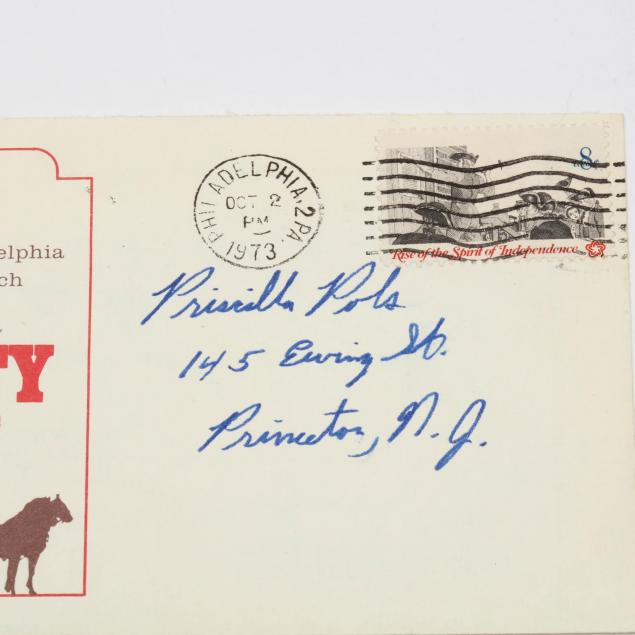 PHILADELPHIA, 2 PA.
OCT 2
PM
1973
8
Rise of the Spirit of Independence
elphia
ch
TY
Priscilla Pols
145 Ewing St.
Princeton, N.J.